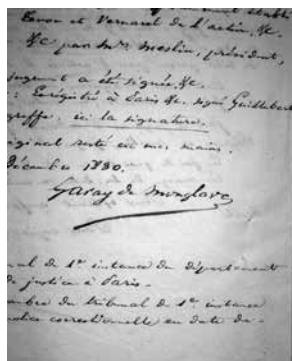 Canon et Vernaret de l'action, &c.
&c. par Mr. Moslin, président,
jugement a été signée, &c.
: Enregistré à Paris &c. signé Guillebert
greffe, ici la signature.
original resté en mes mains.
Décembre 1830.
Garay de Monglave
nal de 1re instance du département
de justice à Paris.
ambre du tribunal de 1re instance
police correctionnelle en date du